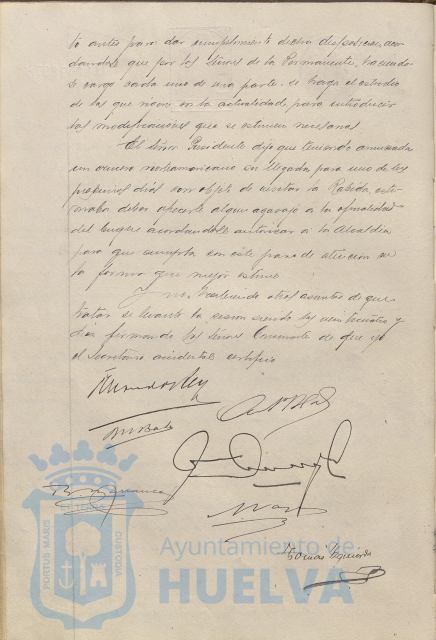 to antes para dar cumplimiento dicha disposicion, acor
dandose que por los señores de la Permanente, haciendo
se cargo cada uno de una parte, se haga el estudio
de las que rigen en la actualidad, para introducir
las modificaciones que se estimen necesarias.
El señor Presidente dijo que teniendo anunciada
un crucero norteamericano su llegada para uno de los
proximos dias con objeto de visitar la Rabida, esti
maba deber ofrecerle algun agasajo a la oficialidad
del buque acordandose autorizar a la Alcaldia
para que cumpla con este paso de atencion en
la forma que mejor estime
Y no habiendo otros asuntos de que
tratar se levantó la sesion siendo las veinticuatro y
diez firmando los señores Concurrentes de que yo
el Secretario accidental certifico
Tomás Izquierdo
PORTUS MARIS
ET TERRAE
CUSTODIA
Ayuntamiento de
HUELVA